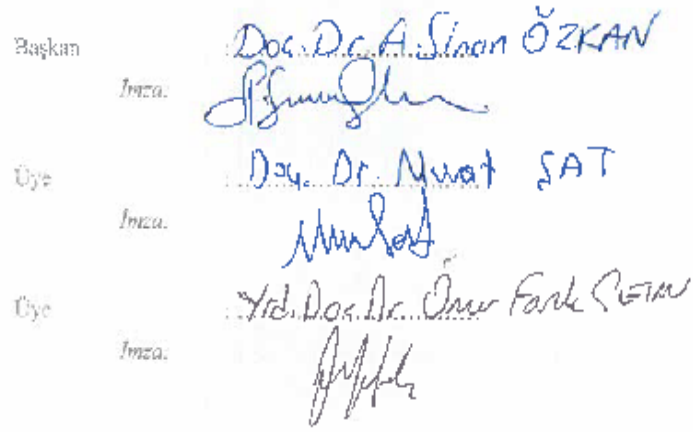 Başkan : Doç. Dr. A. Sinan ÖZKAN
İmza:
Üye : Doç. Dr. Murat ŞAT
İmza:
Üye : Yrd. Doç. Dr. Ömer Faruk ÇETİN
İmza: